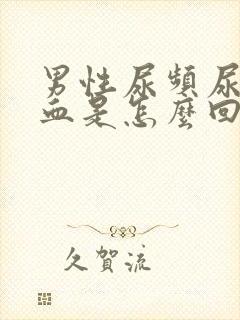 男性尿頻尿
血是怎麼回
久賀流